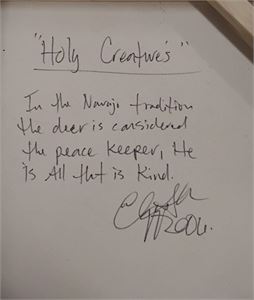 "Holy Creatures"
In the Navajo tradition
the deer is considered
the peace keeper, He
is All tht is kind.
2006.